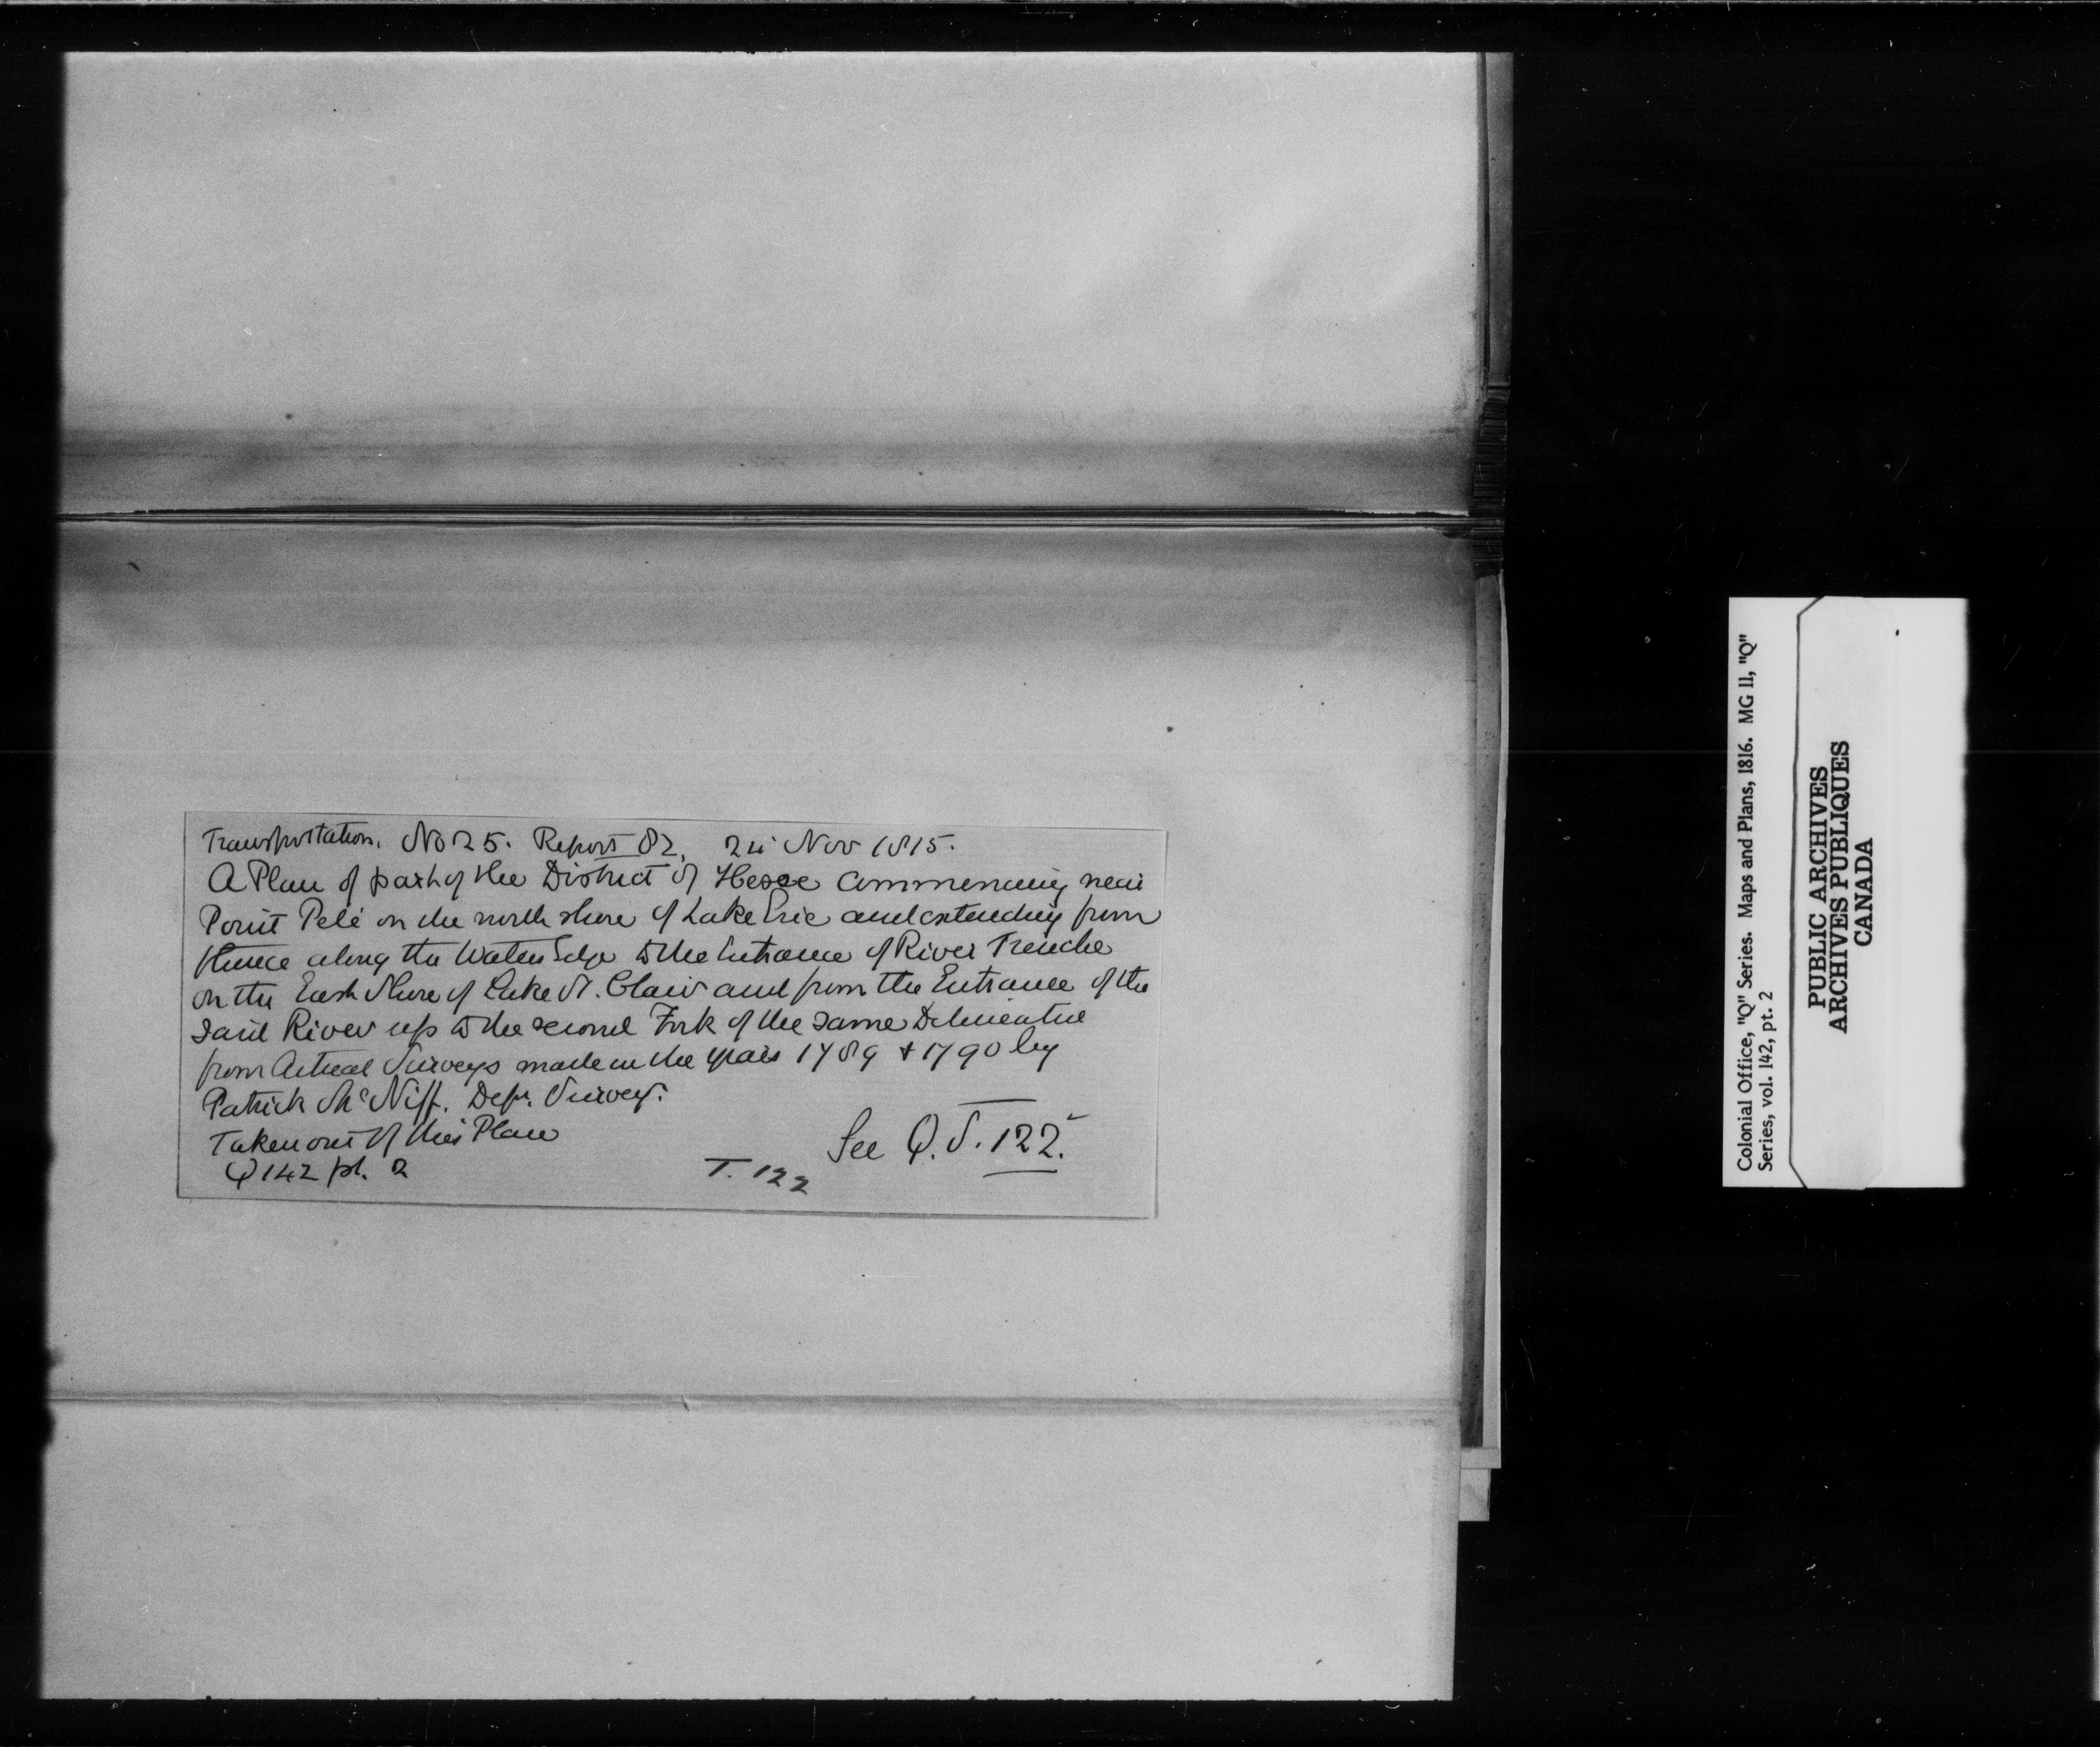 Transportation. No 25. Report 82. 24 Nov 1815.
A Plan of part of the District of Hesse Commencing near
Point Pelé on the north shore of Lake Erie and extending from
thence along the Waters Edge to the Entrance of River Trenche
on the East Shore of Lake St. Clair and from the Entrance of the
said River up to the second Fork of the same Delineated
from Actual Surveys made in the years 1789 & 1790 by
Patrick McNiff. Depy. Survey.
Taken out of this Place
Q 142 pt. 2
T. 122
See Q.T. 122.
Colonial Office, "Q" Series. Maps and Plans, 1816. MG 11, "Q"
Series, vol. 142, pt. 2
PUBLIC ARCHIVES
ARCHIVES PUBLIQUES
CANADA